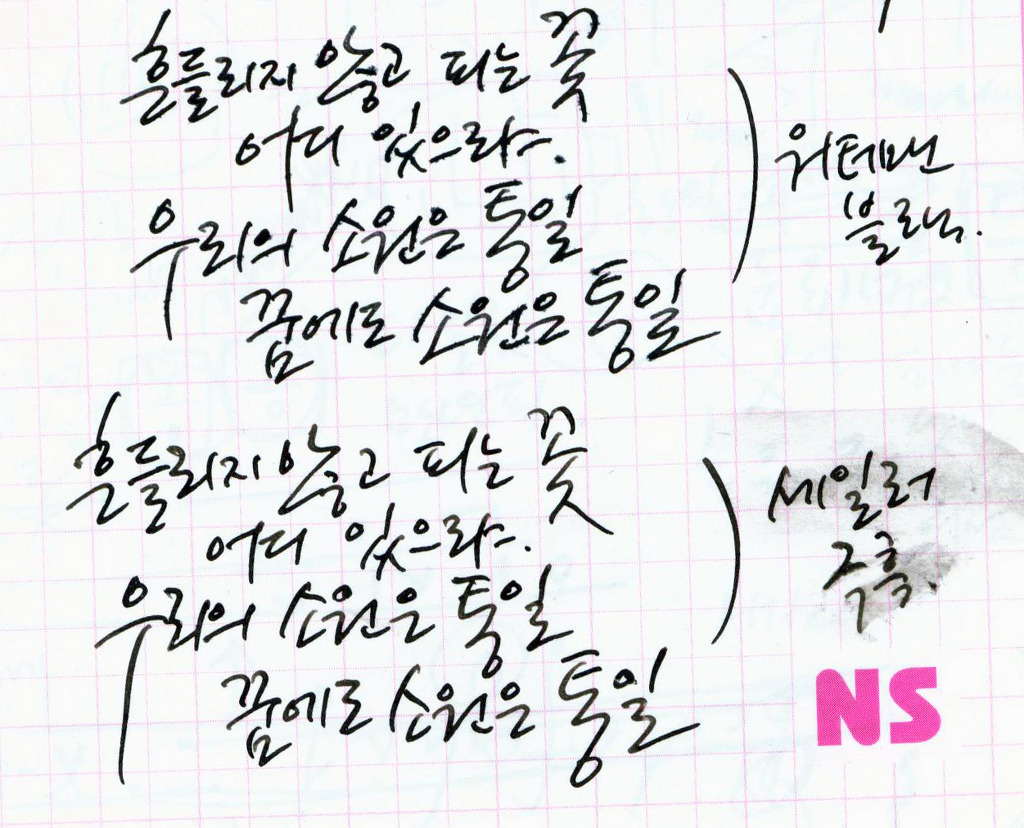 흔들리지 않고 피는 꽃
어디 있으랴.
우리의 소원은 통일
꿈에도 소원은 통일
워터맨
블랙.
흔들리지 않고 피는 꽃
어디 있으랴.
우리의 소원은 통일
꿈에도 소원은 통일
세일러
극흑.
NS